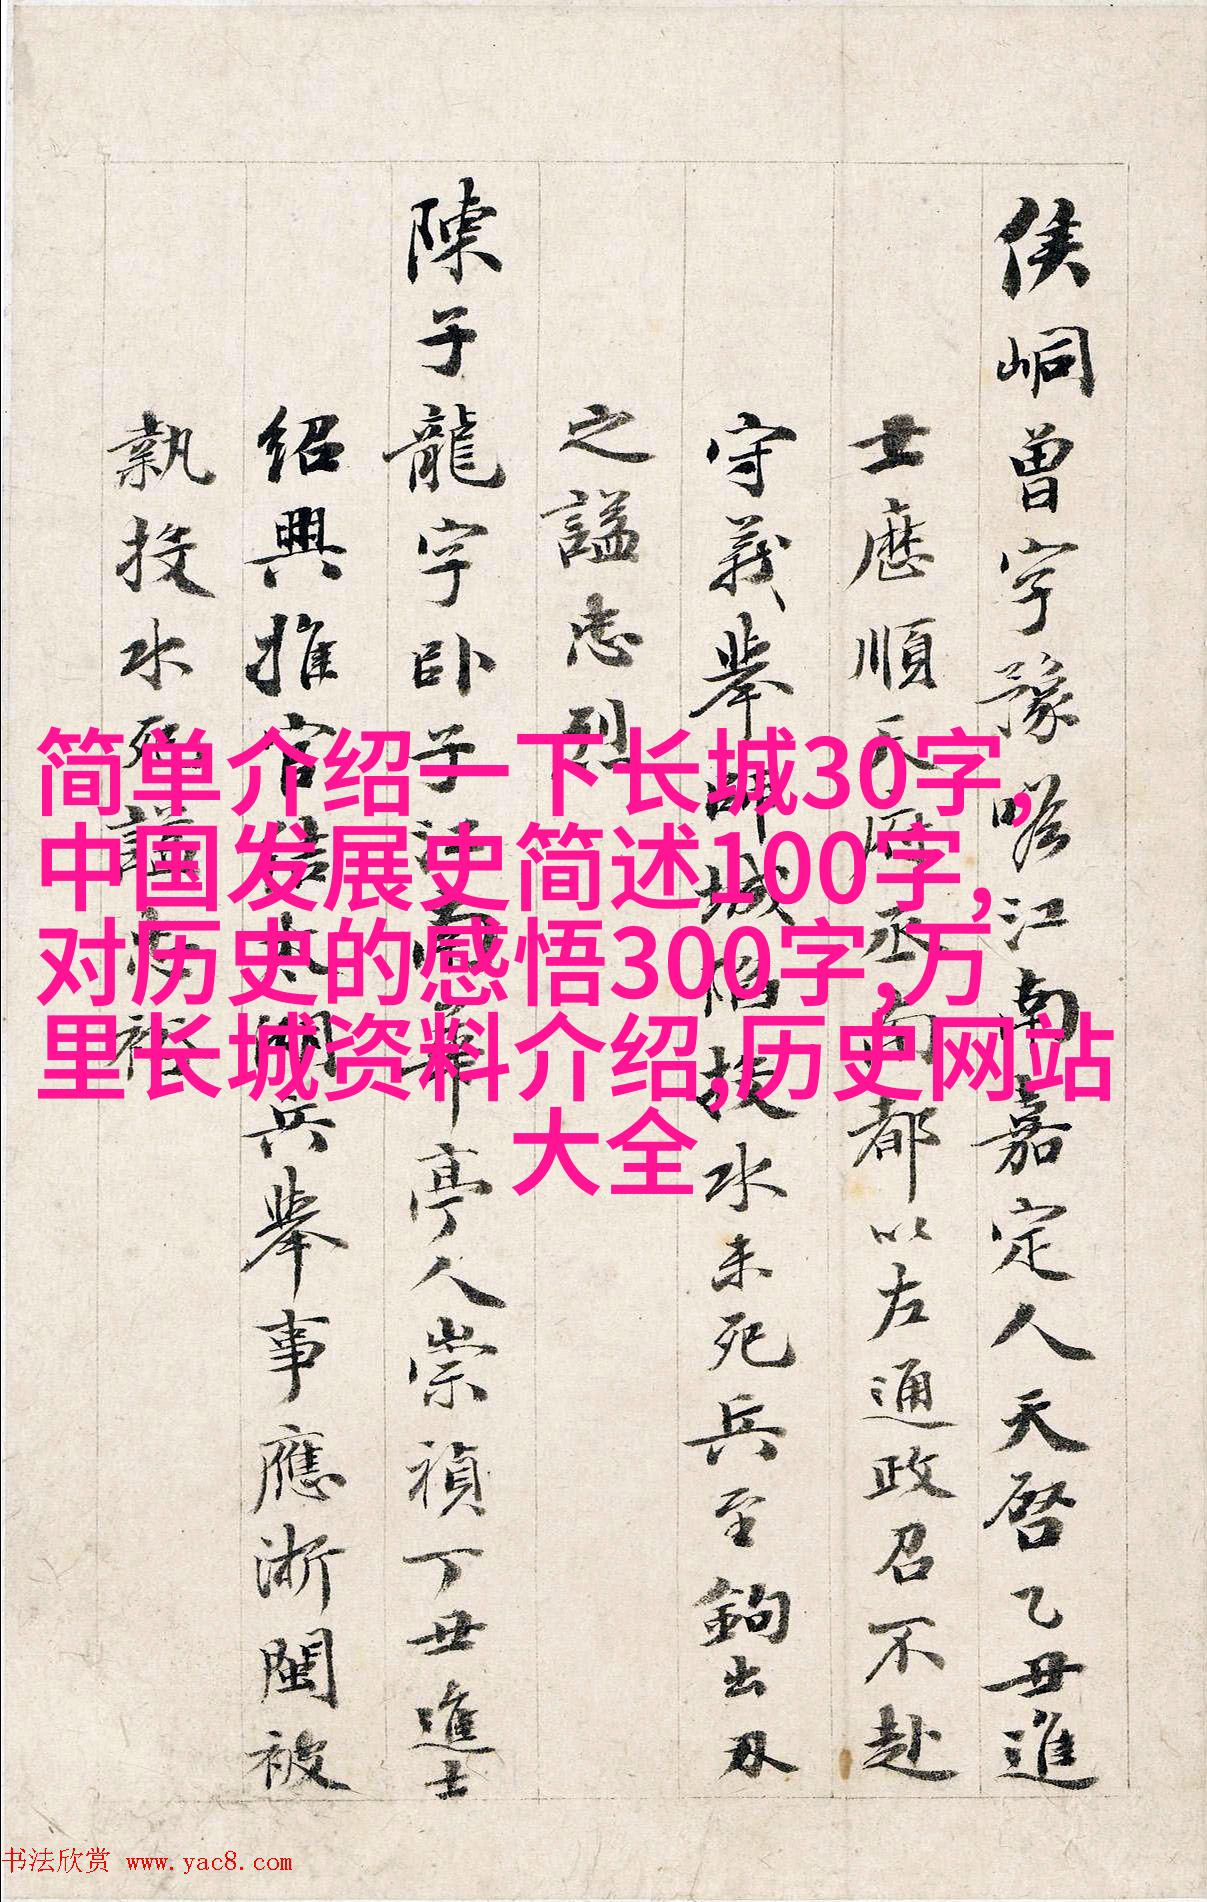 侯峒曾字豫瞻江南嘉定人天啓乙丑進
士歷順天府丞南都以左通政召不赴
守義舉師城陷投水未死兵至鉤出刃
之謚忠烈
陳子龍字臥子江南華亭人崇禎丁丑進士
紹興推官結太湖兵舉事應浙閩被
執投水死謚忠裕
简单介绍一下长城30字,
中国发展史简述100字,
对历史的感悟300字,万
里长城资料介绍,历史网站
大全
书法欣赏 www.yac8.com